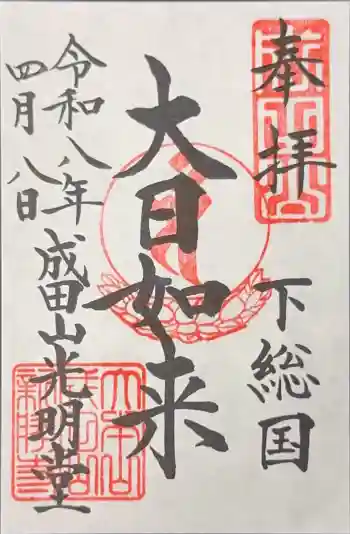 奉拝
下総国
大日如来
成田山光明堂
令和八年
四月八日